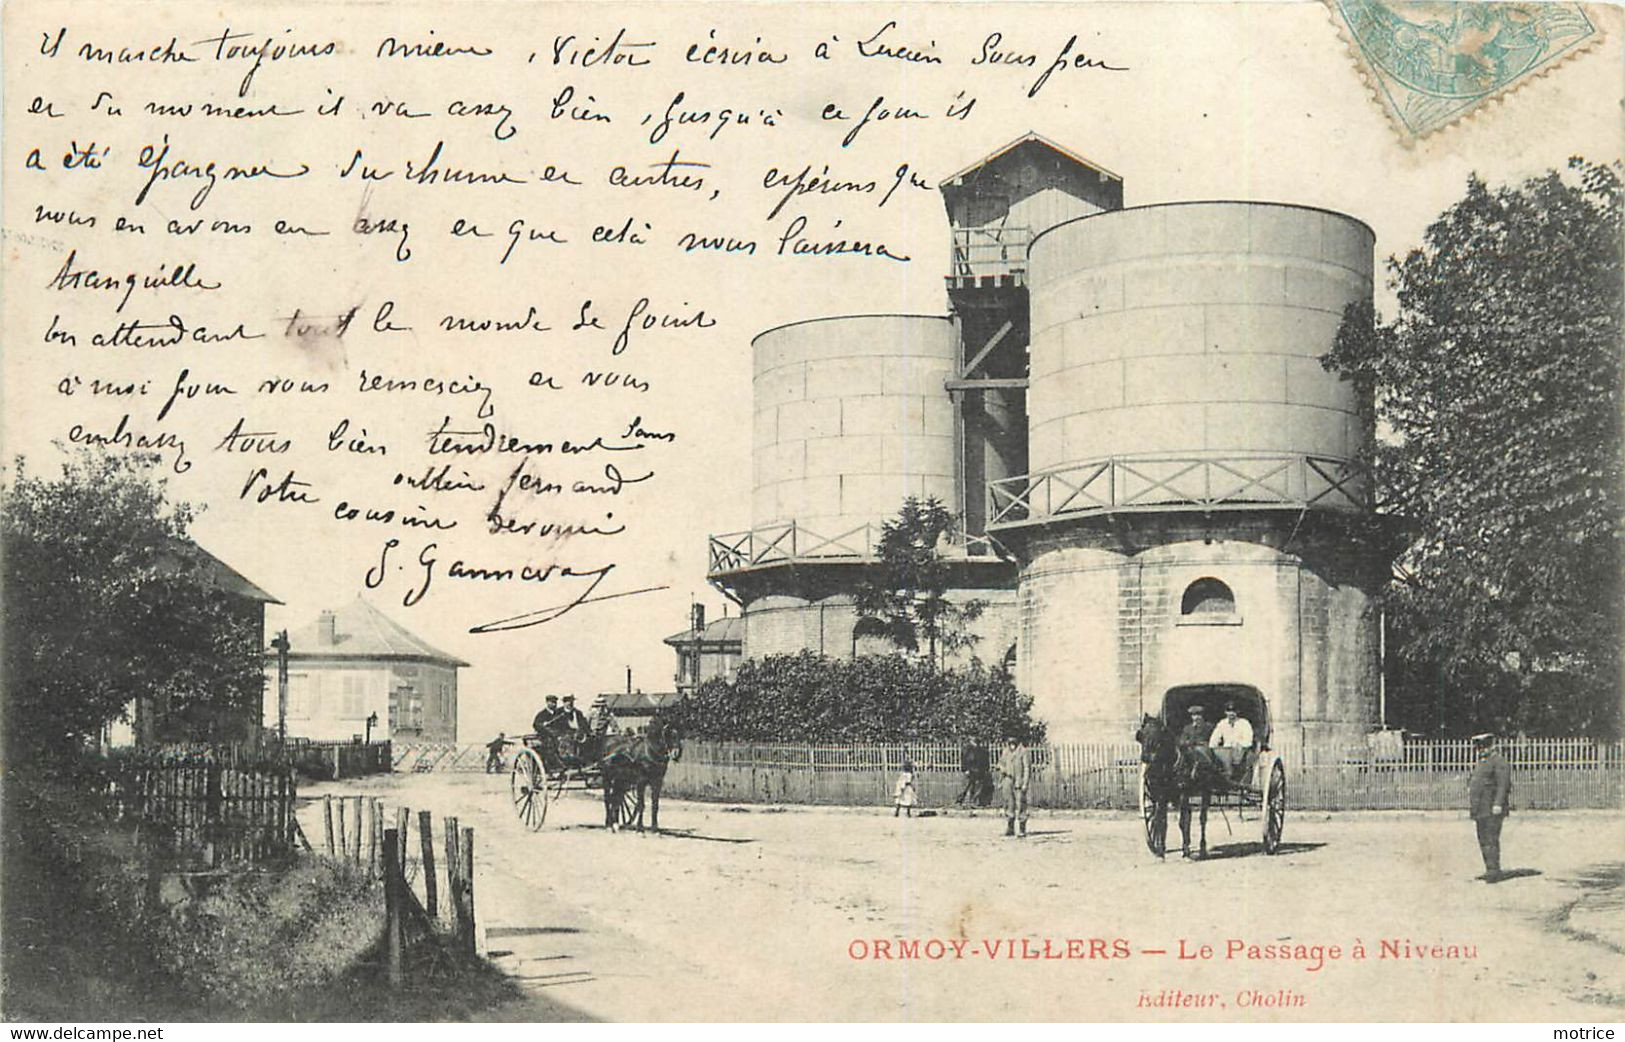 il marche toujours mieux, Victor écrira à Lucien sous peu
et du moment il va assez bien, jusqu'à ce jour il
a été épargner du rhume et autres, espérons que
nous en avons eu assez et que cela nous laissera
tranquille
En attendant tout le monde se joint
à moi pour vous remerciez et vous
embrassz tous bien tendrement sans
oublier Fernand
Votre cousine
ORMOY-VILLERS — Le Passage à Niveau
Editeur, Cholin
motrice